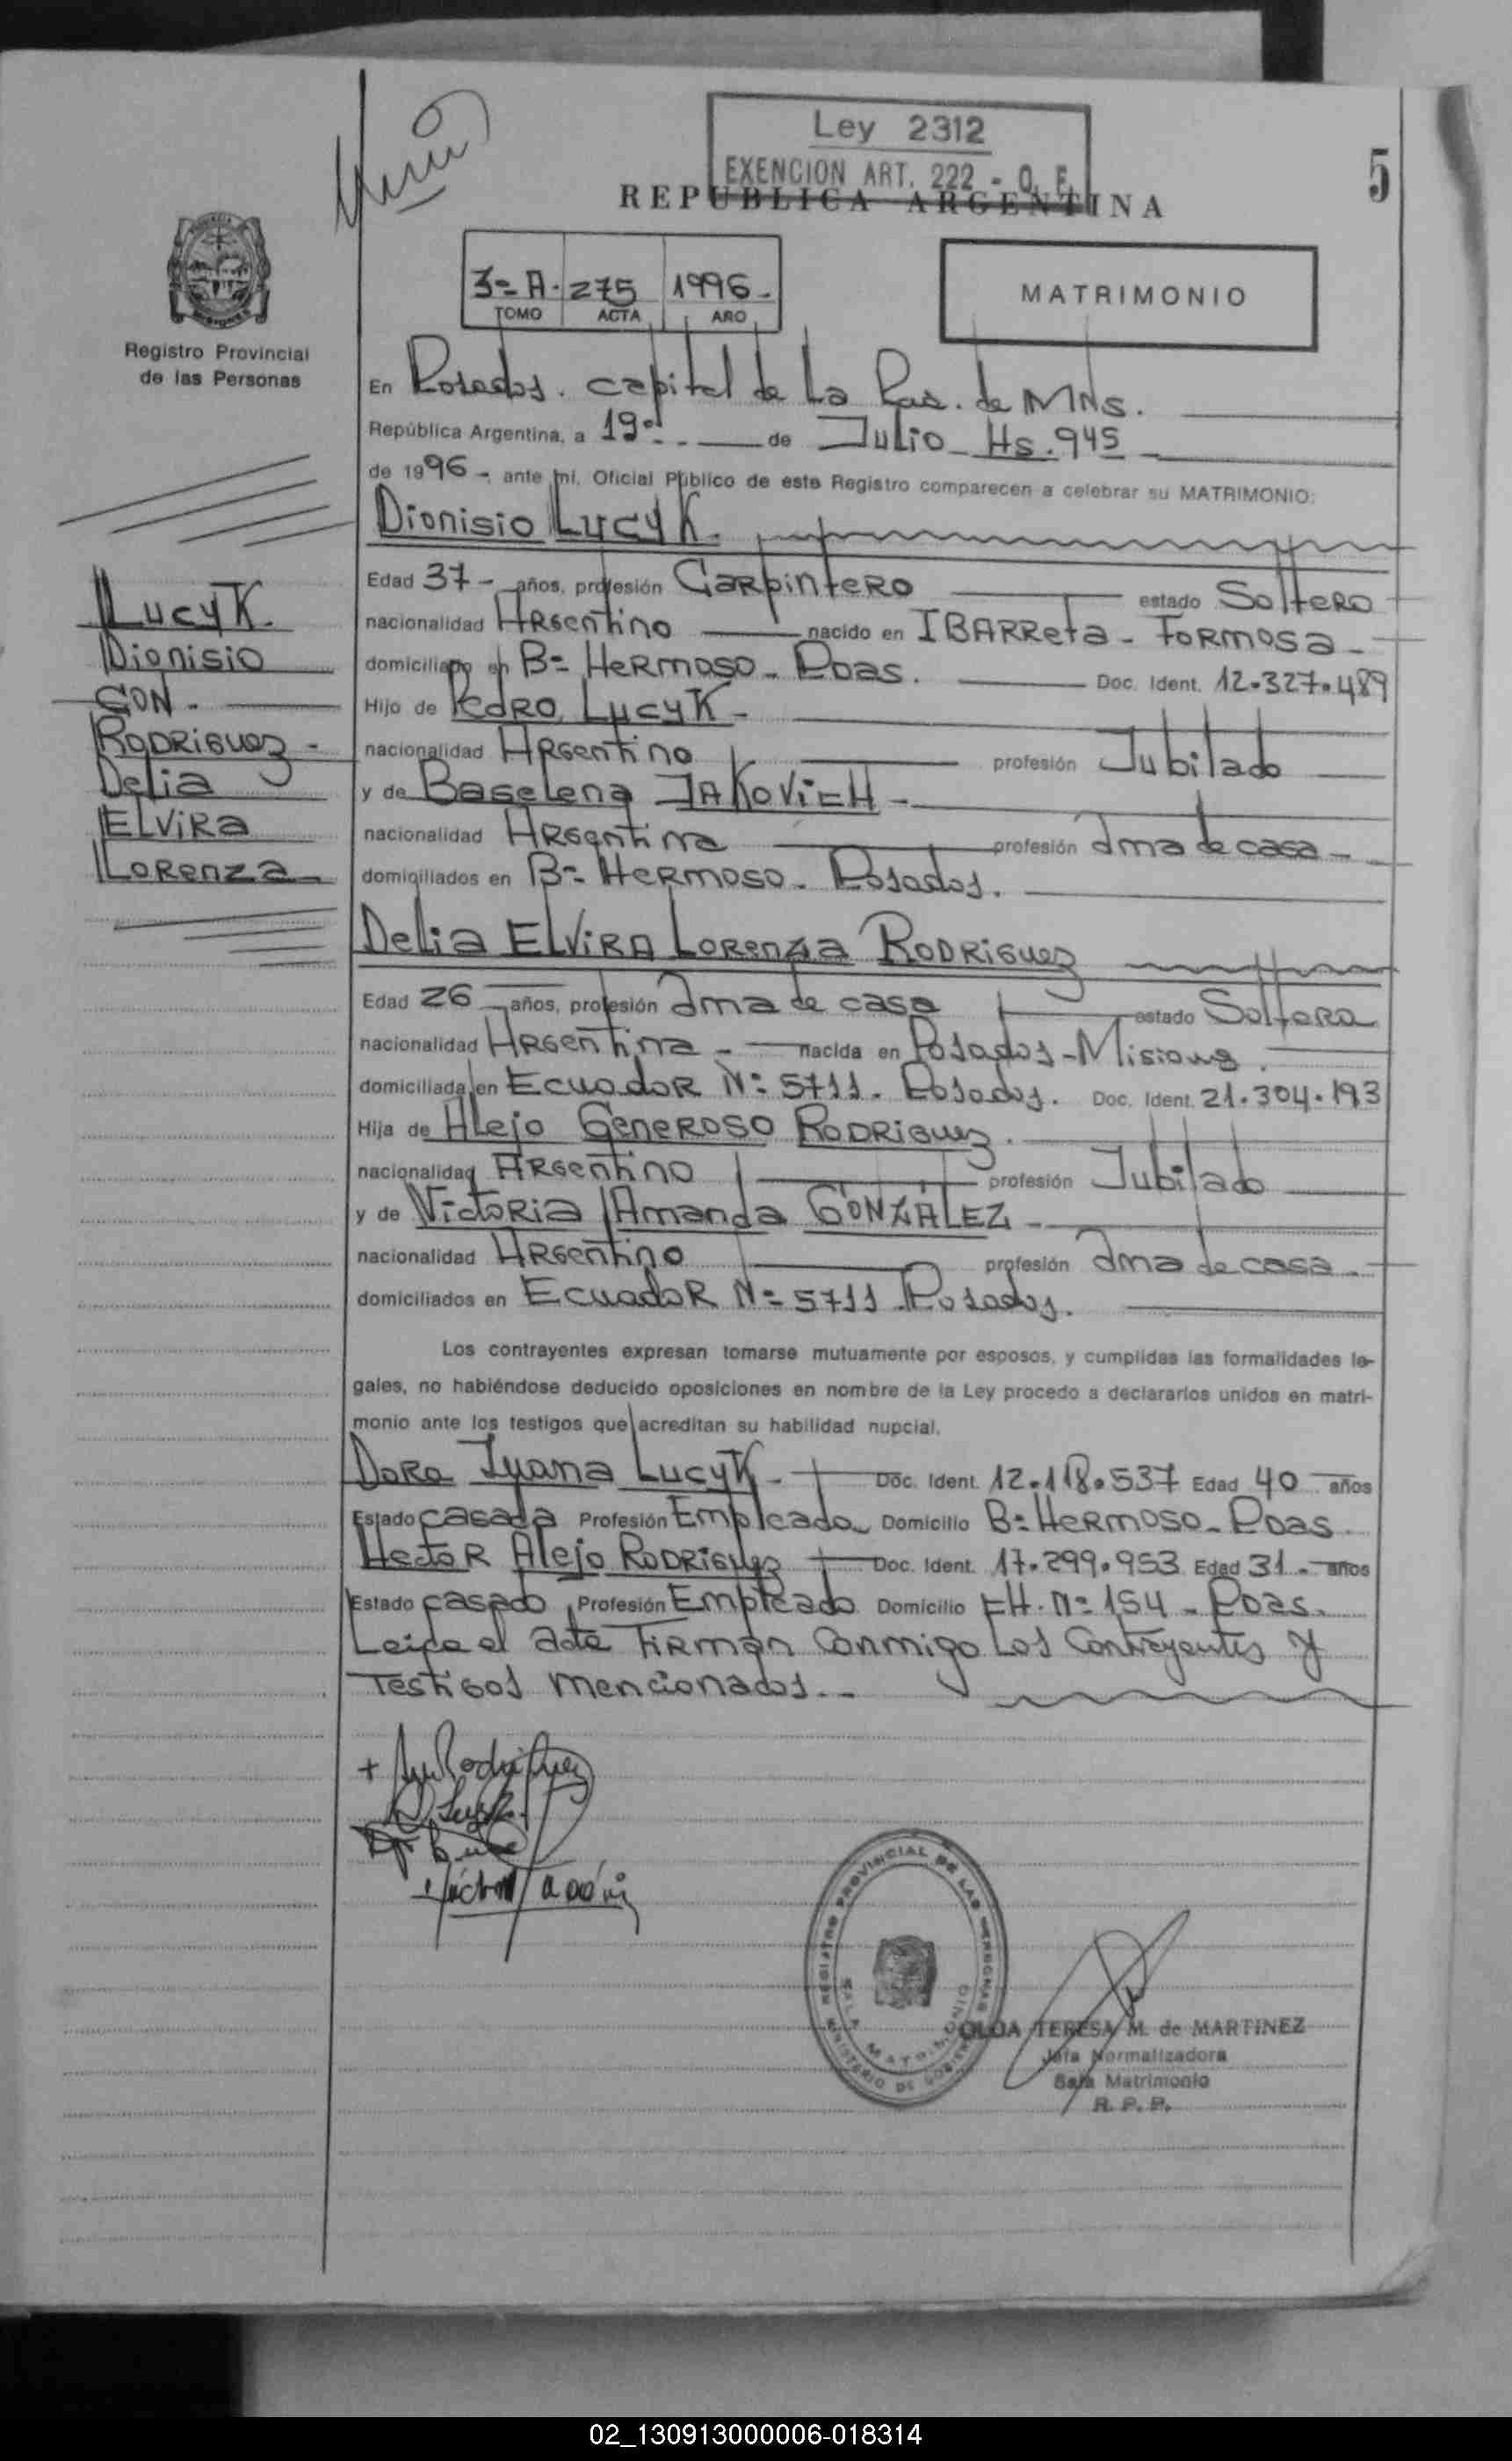 Ley 2312
EXENCION ART. 222 - O. F.
REPUBLICA ARGENTINA
5
3º A. 275 1996.
TOMO ACTA AÑO
MATRIMONIO
Registro Provincial
de las Personas
En Posadas. capital de La Pcia. de MNS.
República Argentina, a 19º de Julio Hs. 945
de 1996 - ante mí, Oficial Público de este Registro comparecen a celebrar su MATRIMONIO:
Dionisio LUCYK.
Edad 37 - años, profesión CARpinteRO estado SolteRO
nacionalidad ARGentino nacido en IBARReta - FoRMOSa -
domiciliado en Bº HeRmoso - Pdas. Doc. Ident. 12.327.489
Hijo de PedRO LucyK -
nacionalidad ARGentino profesión Jubilado
y de Baselena JAKOVICH -
nacionalidad ARGentina profesión Ama de casa -
domiciliados en Bº HeRmoso - Posadas.
LUCYK.
Dionisio
CON.
RODRIGUEZ -
Delia
ELViRa
LoRenza
Delia ELViRA LoRenza RODRiGUez
Edad 26 años, profesión Ama de casa estado SolteRa
nacionalidad ARGentina - nacida en Posadas - Misiones.
domiciliada en EcuadoR Nº 5711. Posadas. Doc. Ident. 21.304.193
Hija de Alejo GeneRoso RODRiGUez.
nacionalidad ARGentino profesión Jubilado
y de VictoRia Amanda GONZALEZ -
nacionalidad ARGentino profesión Ama de casa -
domiciliados en EcuadoR Nº 5711 Posadas.
Los contrayentes expresan tomarse mutuamente por esposos, y cumplidas las formalidades le-
gales, no habiéndose deducido oposiciones en nombre de la Ley procedo a declararlos unidos en matri-
monio ante los testigos que acreditan su habilidad nupcial.
DoRa Iuana LucyK - Doc. Ident. 12.118.537 Edad 40 años
Estado casada Profesión Empleada Domicilio Bº HeRmoso - Pdas.
HectoR Alejo RODRiGuez Doc. Ident. 17.299.953 Edad 31 - años
Estado casado Profesión Empleado Domicilio CH. Nº 154 - Pdas.
Leida el acta FiRman conmigo Los Contrayentes y
TestiGos mencionados. -
REGISTRO PROVINCIAL DE LAS PERSONAS
SALA MATRIMONIO
MINISTERIO DE GOBIERNO
OLGA TERESA M. de MARTINEZ
Jefa Normalizadora
Sala Matrimonio
R. P. P.
02_130913000006-018314